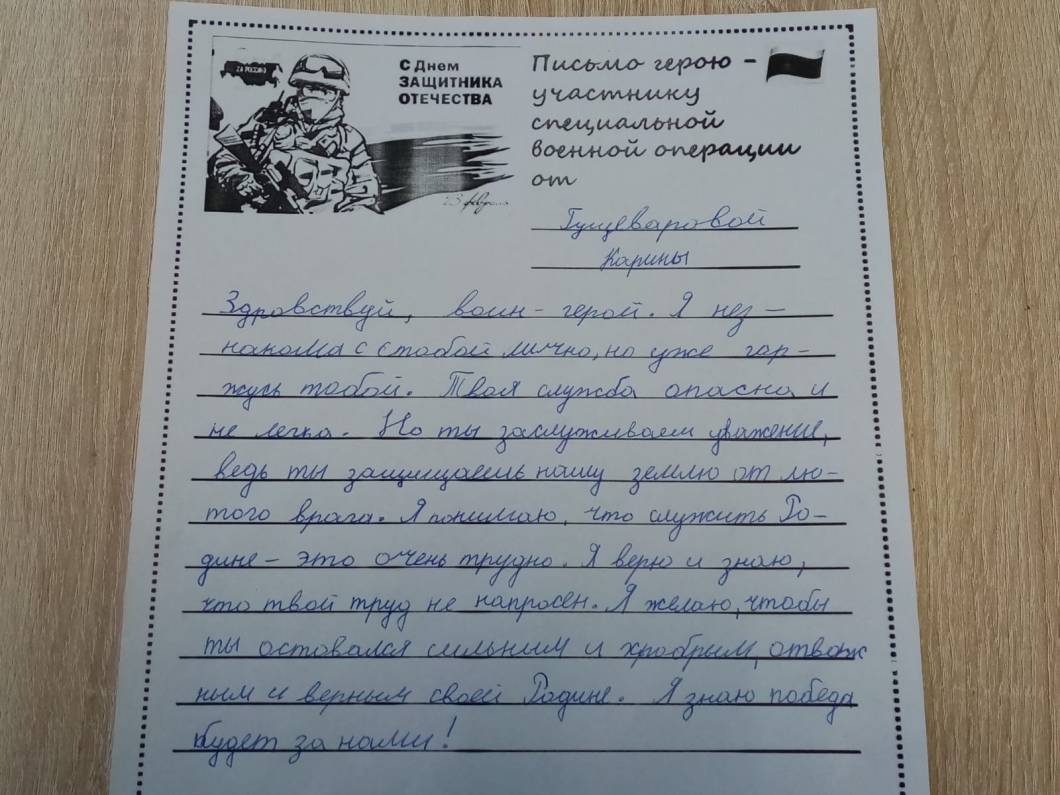 ZА РОССИЮ
С Днем
ЗАЩИТНИКА
ОТЕЧЕСТВА
23 февраля
Письмо герою -
участнику
специальной
военной операции
от
Гущеваровой
Карины
Здравствуй, воин - герой. Я нез -
накома с стобой лично, но уже гор -
жусь тобой. Твоя служба опасна и
не легка. Но ты заслуживаем уважение,
ведь ты защищаешь нашу землю от лю -
того врага. Я понимаю, что служить Ро -
дине - это очень трудно. Я верю и знаю,
что твой труд не напросен. Я желаю, чтобы
ты оставался сильним и храбрым, отваж
ным и верным своей Родине. Я знаю победа
будет за нами!